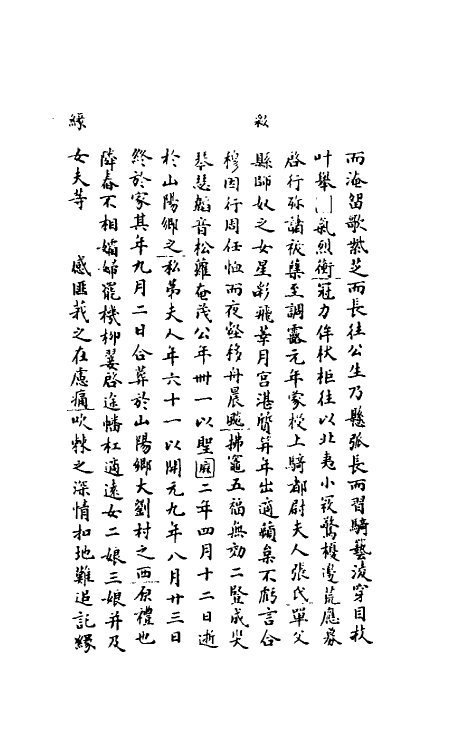 而淹留歌紫芝而長往公生乃懸弧長而習騎藝淩穿目枝
叶舉　氣烈衝冠力侔杖柜往以北夷小寇驚擾邊荒應募
啓行弥諸㧞葉至調露元年蒙授上騎都尉夫人張氏單父
縣師奴之女星彩飛華月宮湛質笄年出適蘋藻不虧言合
穆因行周任恤而夜壑移舟晨飈拂竈五福無効二豎成灾
琴瑟韜音松蘿奄茂公年卌一以聖曆二年四月十二日逝
於山陽鄉之私第夫人年六十一以開元九年八月廿三日
終於家其年九月二日合葬於山陽鄉大劉村之西原禮也
隣舂不相孀婦罷機柳翣啓途幡杠適遠女二娘三娘并及
女夫等　感匪莪之在慮痛吹棘之深情扣地難追託緣